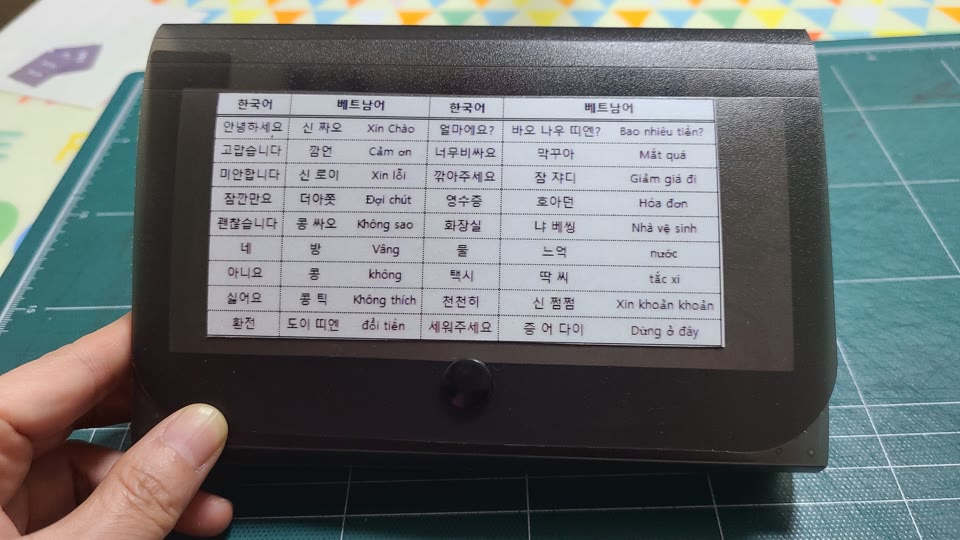 한국어 베트남어 한국어 베트남어
안녕하세요 신 짜오 Xin Chào 얼마에요? 바오 나우 띠엔? Bao nhiêu tiền?
고맙습니다 깜언 Cảm ơn 너무비싸요 막꾸아 Mắt quá
미안합니다 신 로이 Xin lỗi 깎아주세요 잠 쟈디 Giảm giá đi
잠깐만요 더아쭛 Đợi chút 영수증 호아던 Hóa đơn
괜찮습니다 콩 싸오 Không sao 화장실 냐 베씽 Nhà vệ sinh
네 방 Vâng 물 느억 nước
아니요 콩 không 택시 딱 씨 tắc xi
싫어요 콩 틱 Không thích 천천히 신 쩜쩜 Xin khoản khoản
환전 도이 띠엔 đổi tiền 세워주세요 증 어 다이 Dừng ở đây